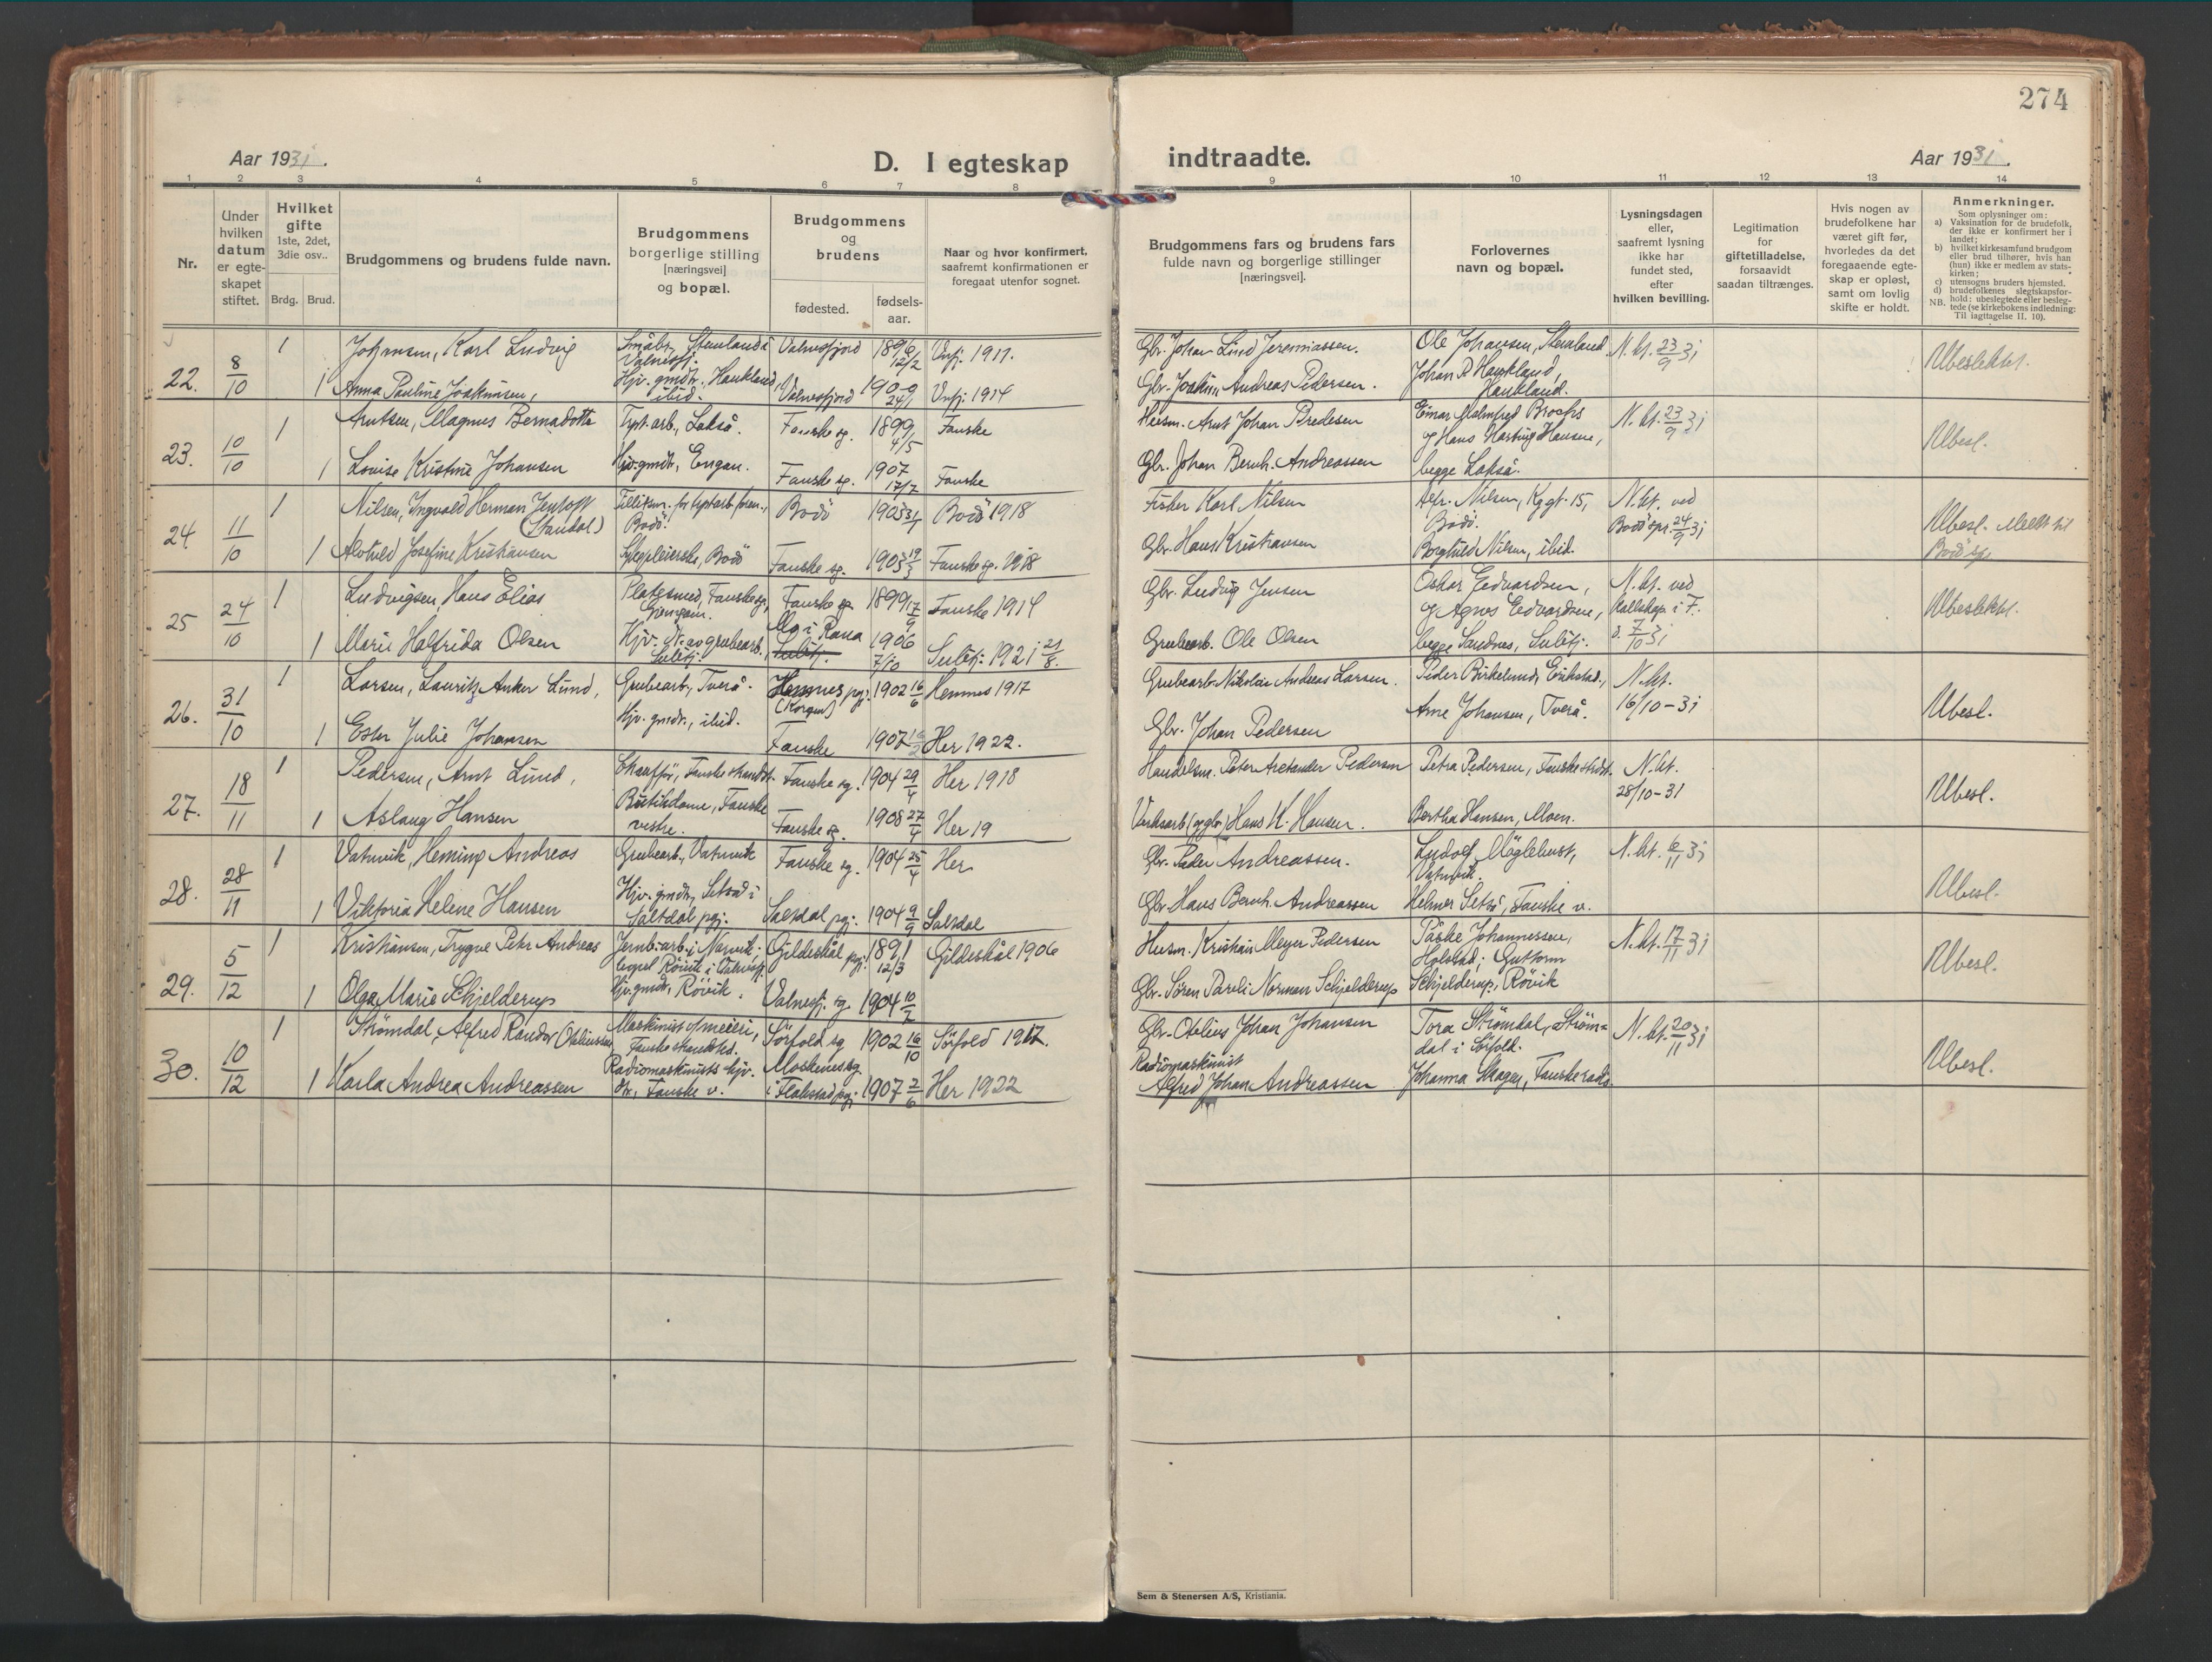 274
Aar 1931.
D. I egteskap
indtraadte.
Aar 1931.
1 2 3 4 5 6 7 8 9 10 11 12 13 14
Nr.
Under hvilken datum er egte-skapet stiftet.
Hvilket gifte
1ste, 2det, 3die osv..
Brdg. Brud.
Brudgommens og brudens fulde navn.
Brudgommens borgerlige stilling [næringsvei] og bopæl.
Brudgommens og brudens
fødested.
fødsels-aar.
Naar og hvor konfirmert, saafremt konfirmationen er foregaat utenfor sognet.
Brudgommens fars og brudens fars fulde navn og borgerlige stillinger [næringsvei].
Forlovernes navn og bopæl.
Lysningsdagen eller, saafremt lysning ikke har fundet sted, efter hvilken bevilling.
Legitimation for giftetilladelse, forsaavidt saadan tiltrænges.
Hvis nogen av brudefolkene har været gift før, hvorledes da det foregaaende egte-skap er opløst, samt om lovlig skifte er holdt.
Anmerkninger.
Som oplysninger om:
a) Vaksination for de brudefolk, der ikke er konfirmert her i landet;
b) hvilket kirkesamfund brudgom eller brud tilhører, hvis han (hun) ikke er medlem av stats-kirken;
c) utensogns bruders hjemsted.
d) brudefolkenes slegtskapsfor-hold: ubeslegtede eller besleg-tede (se kirkebokens indledning:
NB. Til iagttagelse II. 10).
22. 8/10 1 Johansen, Karl Ludvig Småbr., Stenland i Valnesfj. Valnesfjord 1896 12/2 Vnfj. 1911. Gbr. Johan Lind Jeremiassen. Ole Johansen, Stenland N. kt. 23/9 31 Ubeslektet.
1 Anna Pauline Joakimsen, Hjv. gmdtr., Haukland, ibid. Valnesfjord 1900 24/1 Vnfj. 1914 Gbr. Joakim Andreas Pedersen. Johan P. Haukland, Haukland.
23. 10/10 1 Arntsen, Magnus Bernadotte Tyst.arb., Lakså. Fauske sg. 1899 4/5 Fauske Husm. Arnt Johan Bredesen Einar Malmfred Brochs og Hans Hartvig Hansen, N. kt. 23/9 31 Ubesl.
1 Lovise Kristine Johansen Hjv. gmdtr., Engan. Fauske sg. 1907 17/7 Fauske Gbr. Johan Bernh. Andreassen begge Lakså.
24. 11/10 1 Nilsen, Ingvald Herman Jentoft (Sandal) Bodø. Bodø 1905 31/1 Bodø 1918 Fisker Karl Nilsen Alfr. Nilsen, Kggt. 15, Bodø. N. kt. ved Bodø spr. 24/9 31 Ubesl. Meldt til Bodø sp.
1 Alvhild Josefine Kristiansen Sykepleierske, Bodø Fauske sg. 1903 19/3 Fauske sg. 1918 Gbr. Hans Kristiansen Borghild Nilsen, ibid.
25 24/10 1 Ludvigsen, Hans Elias Platesmed, Fauske sg., Fauske sg. 1899 17/9 Fauske 1914 Gbr. Ludvig Jensen Oskar Edvardsen, og Agnes Edvardsen, N. kt. ved Kallskap. i F. d. 7/10 31 Ubeslektet.
1 Marie Halfrida Olsen Hjv. dtr. av grubearb., Sulitj. Mo i Rana Sulitj. 1906 7/10 Sulitj. 1921 21/8. Grubearb. Ole Olsen begge Sandnes, Sulitj.
26. 31/10 1 Larsen, Lauritz Anker Lund, Grubearb., Tverå. Hemnes pgj. (Korgen) 1902 16/6 Hemnes 1917 Grubearb. Nikolai Andreas Larsen. Peder Birkelund, Erikstad., N. kt. 16/10-31 Ubesl.
1 Ester Julie Johansen Hjv. gmdtr., ibid. Fauske 1907 16/2 Her 1922. Gbr. Johan Pedersen Arne Johansen, Tverå.
27. 18/11 1 Pedersen, Arnt Lund, Chauffør, Fauske strandst. Fauske sg. 1904 29/4 Her 1918 Handelsm. Peter Alexander Pedersen Petra Pedersen, Fauske strdst. N. kt. 28/10-31 Ubesl.
1 Aslaug Hansen Butikdame, Fauske vestre. Fauske sg. 1908 27/4 Her 19 Verksarb. (og gbr.) Hans K. Hansen. Bertha Hansen, Moen.
28. 28/11 1 Vatnvik, Heming Andreas Grubearb., Vatnvik Fauske sg. 1904 25/4 Her Gbr. Peder Andreassen. Ludolf Møglehust, Vatnvik. N. kt. 6/11 31 Ubesl.
1 Viktoria Helene Hansen Hjv. gmdtr., Setså i Saltdal pgj. Saltdal pgj. 1904 9/9 Saltdal Gbr. Hans Bernh. Andreassen Helmer Setså, Fauske v.
29. 5/12 1 Kristiansen, Trygve Petr Andreas Jernb.arb. i Narvik, bopel Røvik i Valnesfj. Gildeskål pgj. 1891 12/3 Gildeskål 1906 Husm. Kristian Meyer Pedersen Påske Johannessen, Holstad; Guttorm N. kt. 17/11 31 Ubesl.
1 Olga Marie Schjelderup Hjv. gmdtr., Røvik. Valnesfj. sg. 1904 10/2 Gbr. Søren Pareli Norman Schjelderup Schjelderup, Røvik
30. 10/12 1 Strømdal, Alfred Randor (Obeliussen) Maskinist v/meieri, Fauske strandsted. Sörfold sg. 1902 16/10 Sörfold 1917. Gbr. Obelius Johan Johansen Tora Strømdal, Strøm=dal i Sörfold. N. kt. 20/11 31 Ubesl.
1 Karla Andrea Andreassen Radiomaskinists hjv. dtr., Fauske v. Moskenes sg. i Flakstad pgj. 1907 2/6 Her 1922 Radiomaskinist Alfred Johan Andreassen Johanna Skagen, Fauske
Sem & Stenersen A/S, Kristiania.